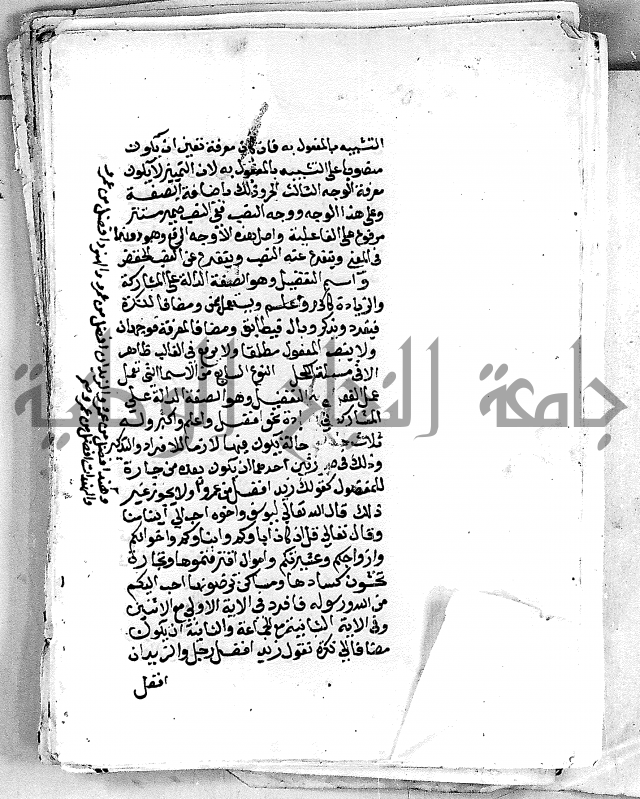 التشبيه بالمفعول به فان كان معرفة تعين ان يكون
منصوبا على التشبيه بالمفعول به لان التمييز لا يكون
معرفة الوجه الثالث الجر وذلك باضافة الصفة
وعلى هذا الوجه ووجه النصب ففي الصفة ضمير مستتر
مرفوع على الفاعلية واصل هذه الاوجه الرفع وهو دونهما
في المعنى ويتفرع عنه النصب ويتفرع عن النصب الخفض
واسم التفضيل وهو الصفة الدالة على المشاركة
والزيادة كاكرم واعلم ويستعمل بمن ومضافا لنكرة
فيفرد ويذكر وبال فيطابق ومضافا لمعرفة فوجهان
ولا ينصب المفعول مطلقا ولا يرفع في الغالب ظاهر
الا في مسئلة الكحل النوع السابع من الاسماء التي تعمل
عمل الفعل التفضيل وهو الصفة الدالة على
المشاركة نحو افضل واعلم واكثر وله
ثلاث حالة يكون فيها لازما للافراد والتذكير
وذلك في صورتين احدهما ان يكون بعده من جارة
للمفضول كقولك زيد افضل من عمرو ولا يجوز غير
ذلك قال الله تعالى ليوسف واخوه احب الى ابينا منا
وقال تعالى قل ان كان اباؤكم وابناؤكم واخوانكم
وازواجكم وعشيرتكم واموال اقترفتموها وتجارة
تخشون كسادها ومساكن ترضونها احب اليكم
من الله ورسوله فافرد في الاية الاولى مع الاثنين
وفي الاية الثانية مع الجماعة والثانية ان يكون
مضافا الى نكرة تقول زيد افضل رجل والزيدان
افضل
وهند افضل من عمرو والزيدان افضل من عمرو والهندان افضل من عمرو
والهندات افضل من عمرو
جامعة النجاح الوطنية